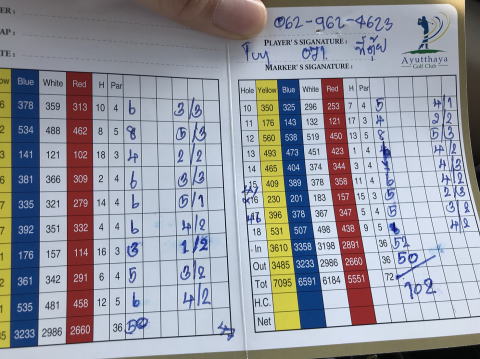 062-962-4623
PLAYER'S SIGANATURE :
MARKER'S SIGANATURE :
Ayutthaya
Golf Club
Blue White Red H Par
378 359 313 10 4 6 3/3
534 488 462 8 5 8 5/3
141 121 102 18 3 4 2/2
381 366 309 2 4 6 3/3
335 321 279 14 4 6 5/1
392 351 332 4 4 6 4/2
176 157 114 16 3 3 1/2
361 342 291 6 4 5 3/2
535 481 458 12 5 6 4/2
3233 2986 2660 36 50
Hole Yellow Blue White Red H Par
10 350 325 296 253 7 4 5 4/1
11 176 143 132 121 17 3 4 2/2
12 560 538 519 450 13 5 8 5/3
13 493 473 451 423 1 4 4/2
14 465 404 374 344 3 4 4/3
15 409 389 378 358 11 4 6 4/2
230 201 183 157 15 3 5 2/3
396 378 367 347 5 4 5 3/2
18 531 507 498 438 9 5 4/2
In 3610 3358 3198 2891 36 52
Out 3485 3233 2986 2660 36 50
Tot 7095 6591 6184 5551 72 102
H.C.
Net